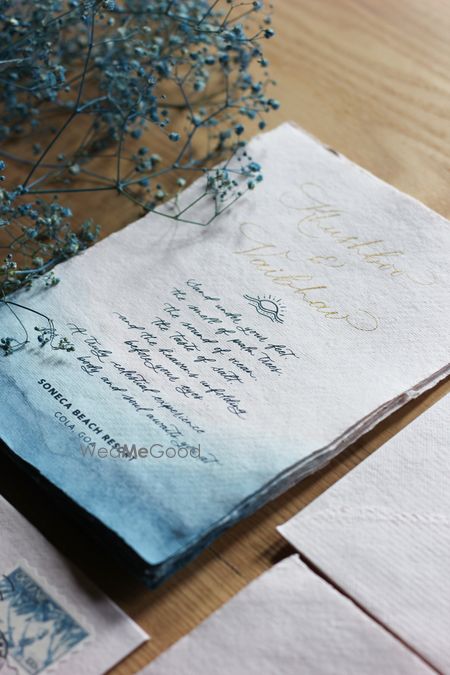 Khushboo
&
Vaibhav
Sand under your feet
the smell of palm trees
the sound of ocean
the taste of salt
and the heavens unfolding
before your eyes
A truly celestial experience
body and soul awaits you at
SONECA BEACH RESORT
COLA, GOA
WedMeGood